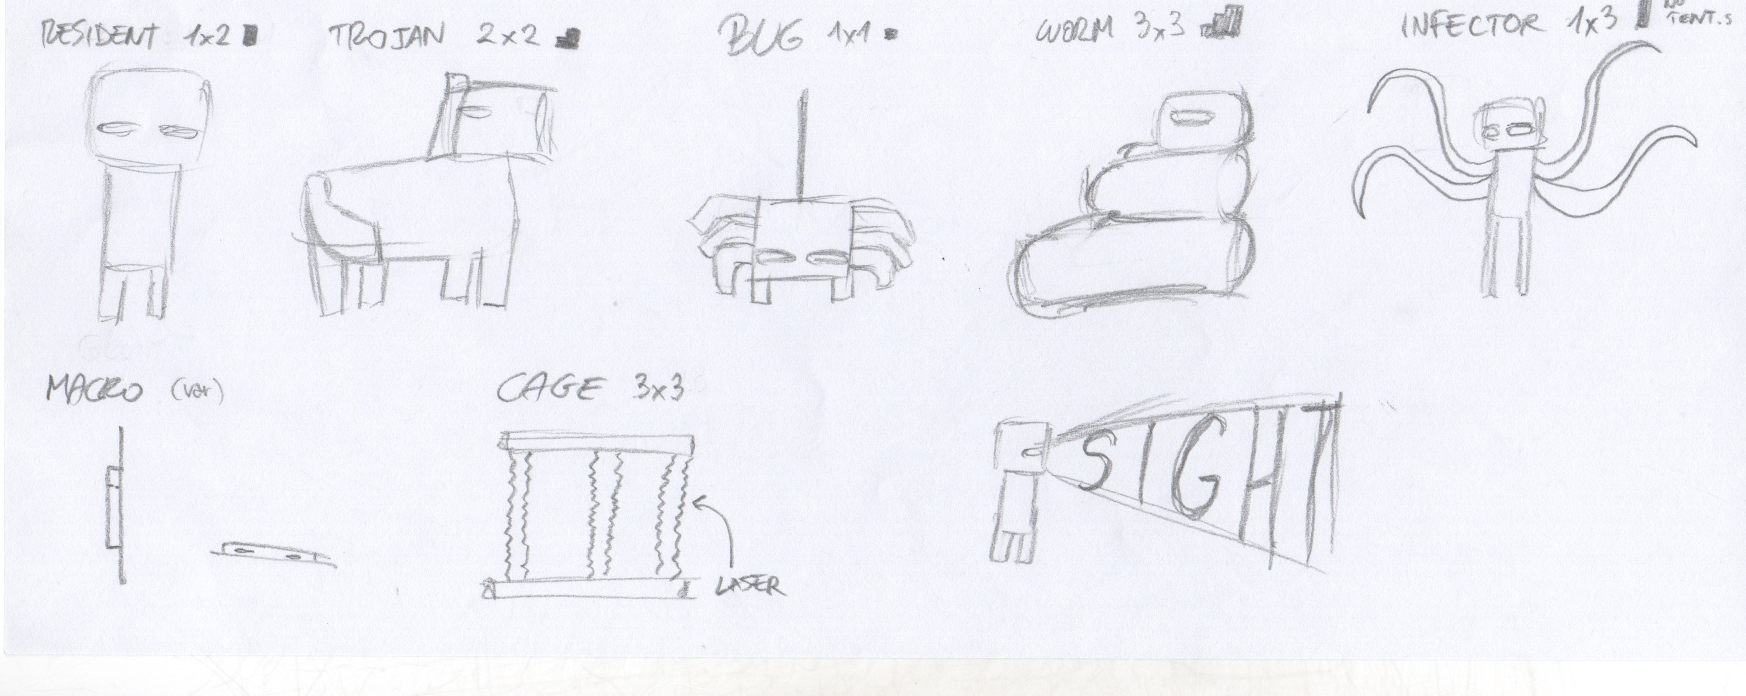 RESIDENT 1x2
TROJAN 2x2
BUG 1x1
WORM 3x3
INFECTOR 1x3
NO
TENT.S
MACRO (var)
CAGE 3x3
LASER
SIGHT